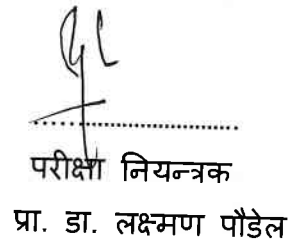 परीक्षा नियन्त्रक
प्रा. डा. लक्ष्मण पौडेल